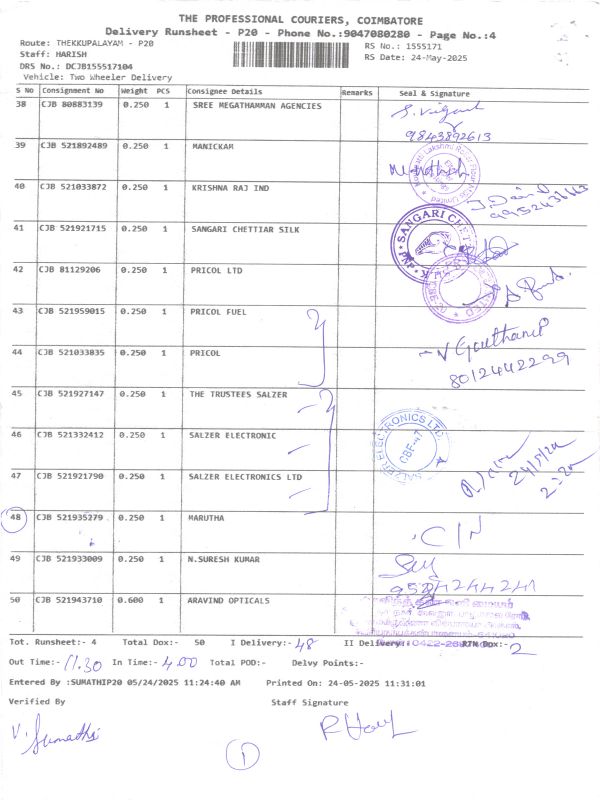 THE PROFESSIONAL COURIERS, COIMBATORE
Delivery Runsheet - P20 - Phone No.:9047080280 - Page No.:4
Route: THEKKUPALAYAM - P20
RS No.: 1555171
Staff: HARISH
RS Date: 24-May-2025
DRS No.: DCJB155517104
Vehicle: Two Wheeler Delivery
S No Consignment No Weight PCS Consignee Details Remarks Seal & Signature
38 CJB 80883139 0.250 1 SREE MEGATHAMMAN AGENCIES
9843892613
39 CJB 521892489 0.250 1 MANICKAM
40 CJB 521033872 0.250 1 KRISHNA RAJ IND
41 CJB 521921715 0.250 1 SANGARI CHETTIAR SILK
SANGARI CHETT
42 CJB 81129206 0.250 1 PRICOL LTD
43 CJB 521959015 0.250 1 PRICOL FUEL
44 CJB 521033835 0.250 1 PRICOL
8012442299
45 CJB 521927147 0.250 1 THE TRUSTEES SALZER
46 CJB 521332412 0.250 1 SALZER ELECTRONIC
SALZER ELECTRONICS LTD
CBE-47
47 CJB 521921790 0.250 1 SALZER ELECTRONICS LTD
48 CJB 521935279 0.250 1 MARUTHA
49 CJB 521933009 0.250 1 N.SURESH KUMAR
50 CJB 521943710 0.600 1 ARAVIND OPTICALS
Tot. Runsheet:- 4 Total Dox:- 50 I Delivery:- 48 II Delivery:- RTN Dox:- 2
Out Time:- 11.30 In Time:- 4.00 Total POD:- Delvy Points:-
Entered By :SUMATHIP20 05/24/2025 11:24:40 AM Printed On: 24-05-2025 11:31:01
Verified By Staff Signature
V. Sumathi
1